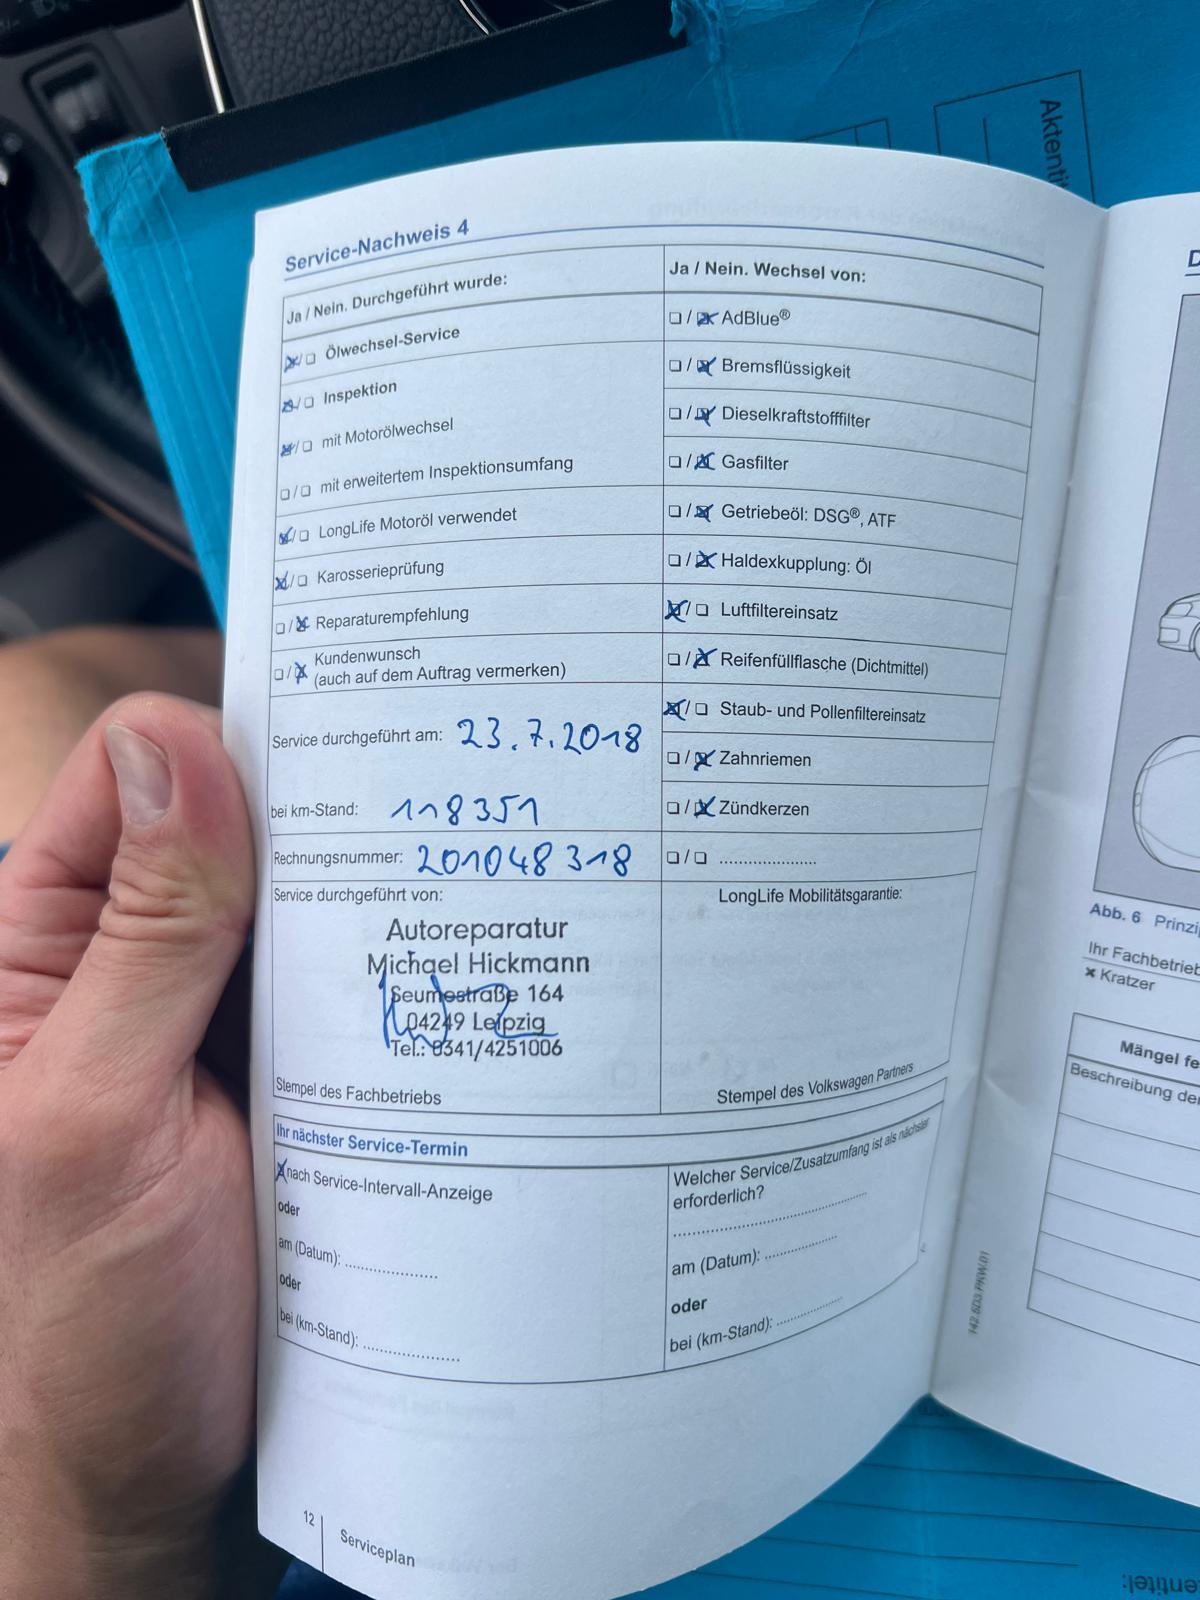 Aktentit
Service-Nachweis 4
Ja / Nein. Durchgeführt wurde:
☒/☐ Ölwechsel-Service
☒/☐ Inspektion
☒/☐ mit Motorölwechsel
☐/☐ mit erweitertem Inspektionsumfang
☒/☐ LongLife Motoröl verwendet
☒/☐ Karosserieprüfung
☐/☒ Reparaturempfehlung
☐/☒ Kundenwunsch
(auch auf dem Auftrag vermerken)
Service durchgeführt am: 23.7.2018
bei km-Stand: 118351
Rechnungsnummer: 201048318
Service durchgeführt von:
Autoreparatur
Michael Hickmann
Seumestraße 164
04249 Leipzig
Tel.: 0341/4251006
Stempel des Fachbetriebs
Ja / Nein. Wechsel von:
☐/☒ AdBlue®
☐/☒ Bremsflüssigkeit
☐/☒ Dieselkraftstofffilter
☐/☒ Gasfilter
☐/☒ Getriebeöl: DSG®, ATF
☐/☒ Haldexkupplung: Öl
☒/☐ Luftfiltereinsatz
☐/☒ Reifenfüllflasche (Dichtmittel)
☒/☐ Staub- und Pollenfiltereinsatz
☐/☒ Zahnriemen
☐/☒ Zündkerzen
☐/☐ ....................
LongLife Mobilitätsgarantie:
Stempel des Volkswagen Partners
Ihr nächster Service-Termin
☒ nach Service-Intervall-Anzeige
oder
am (Datum): ....................
oder
bei (km-Stand): ....................
Welcher Service/Zusatzumfang ist als nächster
erforderlich? ....................
....................
am (Datum): ....................
oder
bei (km-Stand): ....................
142.5D3.PKW.01
12
Serviceplan
D
Abb. 6 Prinzi
Ihr Fachbetrieb
✖ Kratzer
Mängel fe
Beschreibung der
entitel: